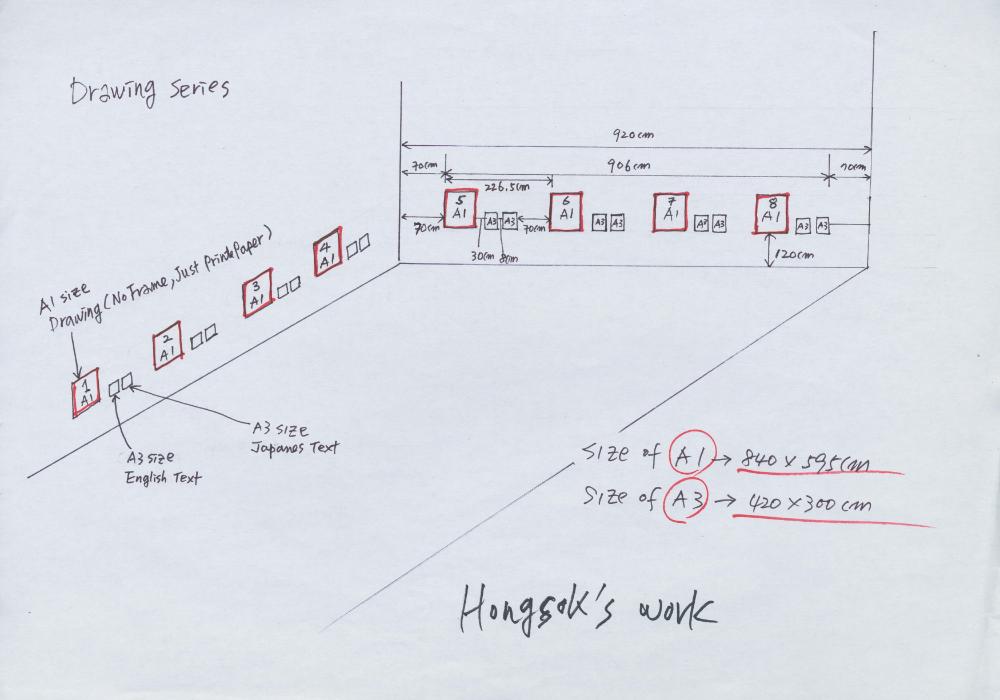 Drawing series
920cm
70cm
906cm
70cm
226.5cm
5
A1
6
A1
7
A1
8
A1
A3 A3
A3 A3
A3 A3
A3 A3
70cm
70cm
30cm
8cm
120cm
4
A1
3
A1
2
A1
1
A1
A1 size
Drawing (No Frame, Just Printed Paper)
A3 size
English Text
A3 size
Japanes Text
Size of A1 → 840 x 595cm
Size of A3 → 420 x 300cm
Hongsok's work